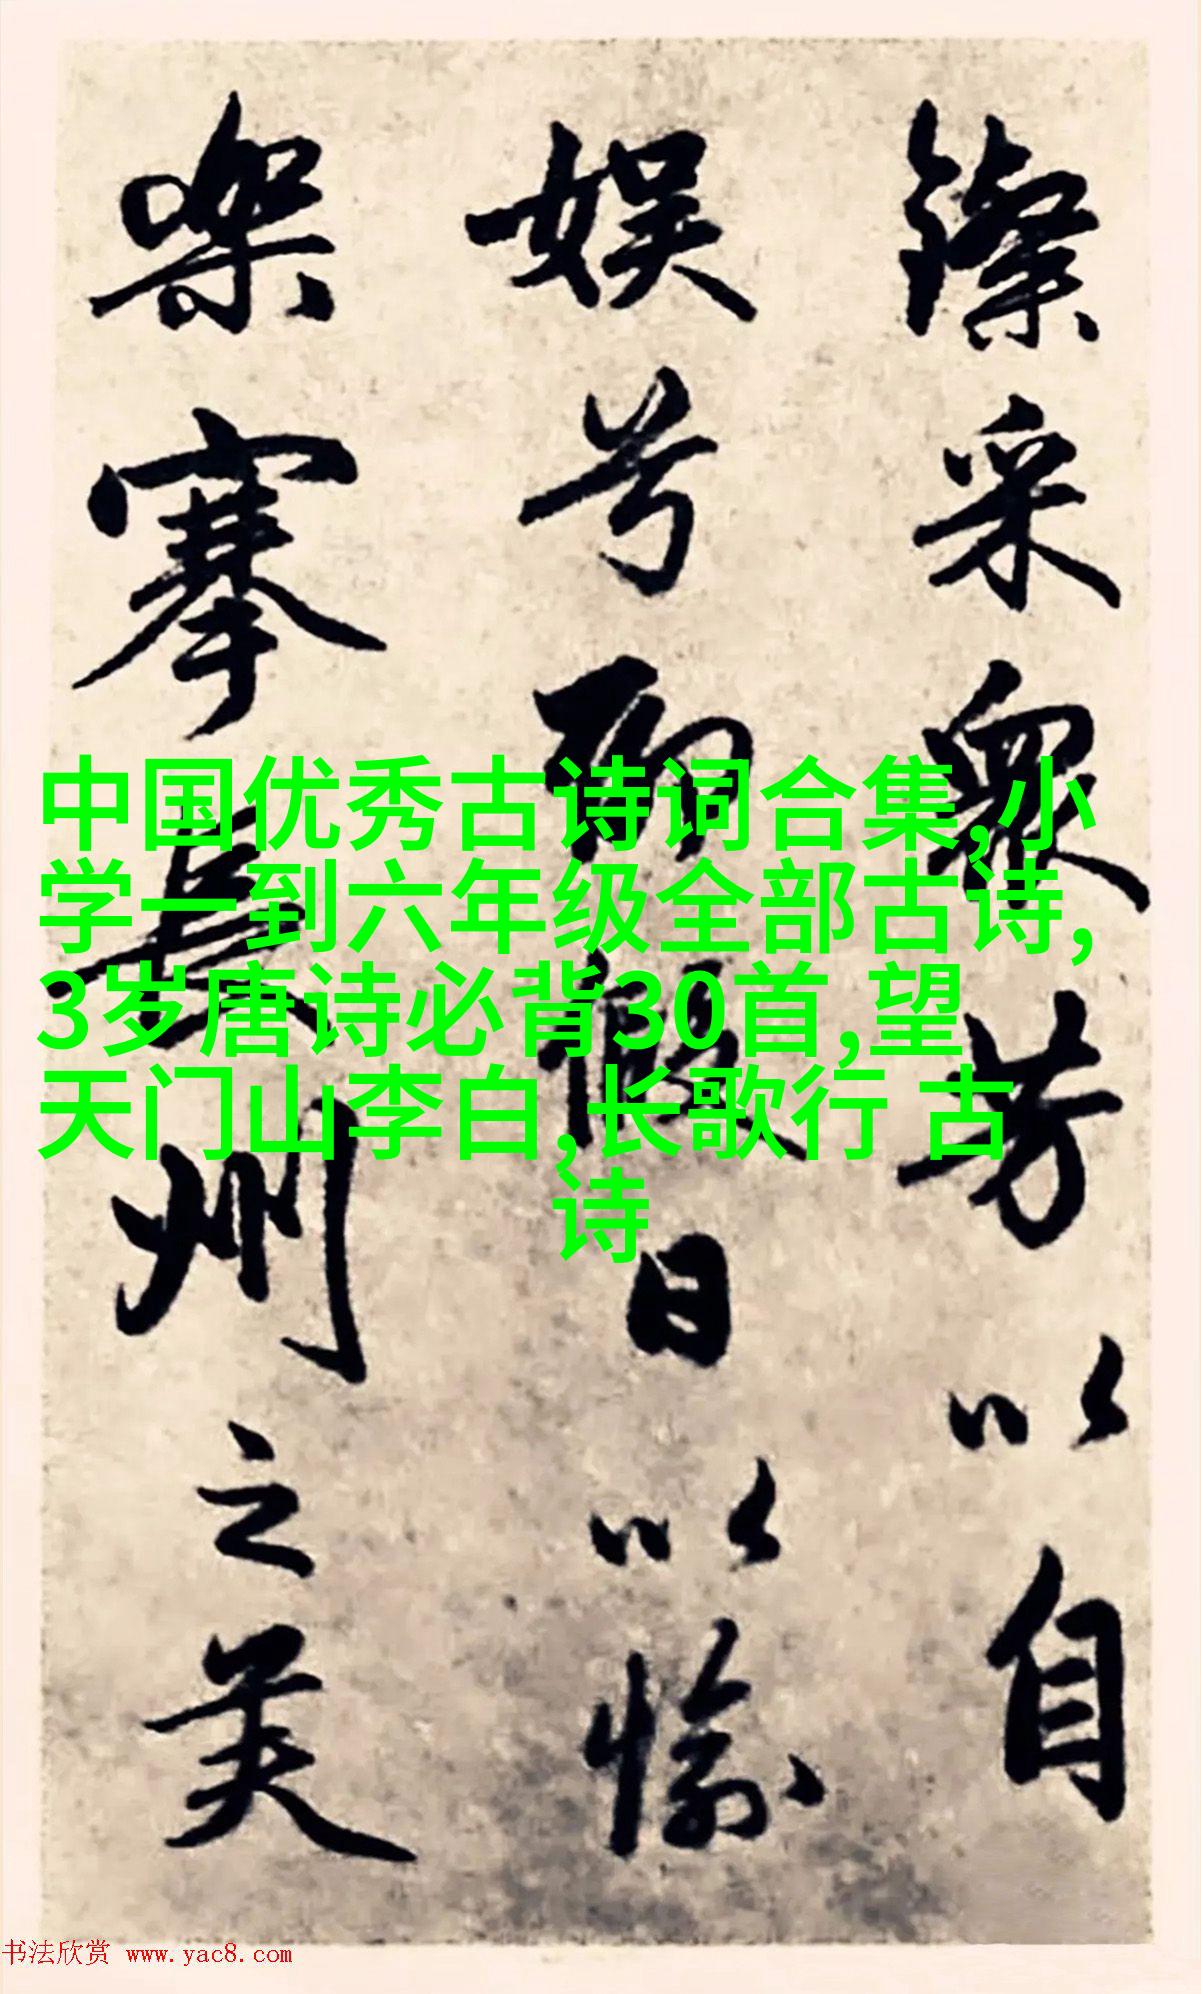 采衆芳以自
娛兮聊假日以愉
樂搴長州之美
中国优秀古诗词合集,小
学一到六年级全部古诗,
3岁唐诗必背30首,望
天门山李白,长歌行 古
诗
书法欣赏 www.yac8.com